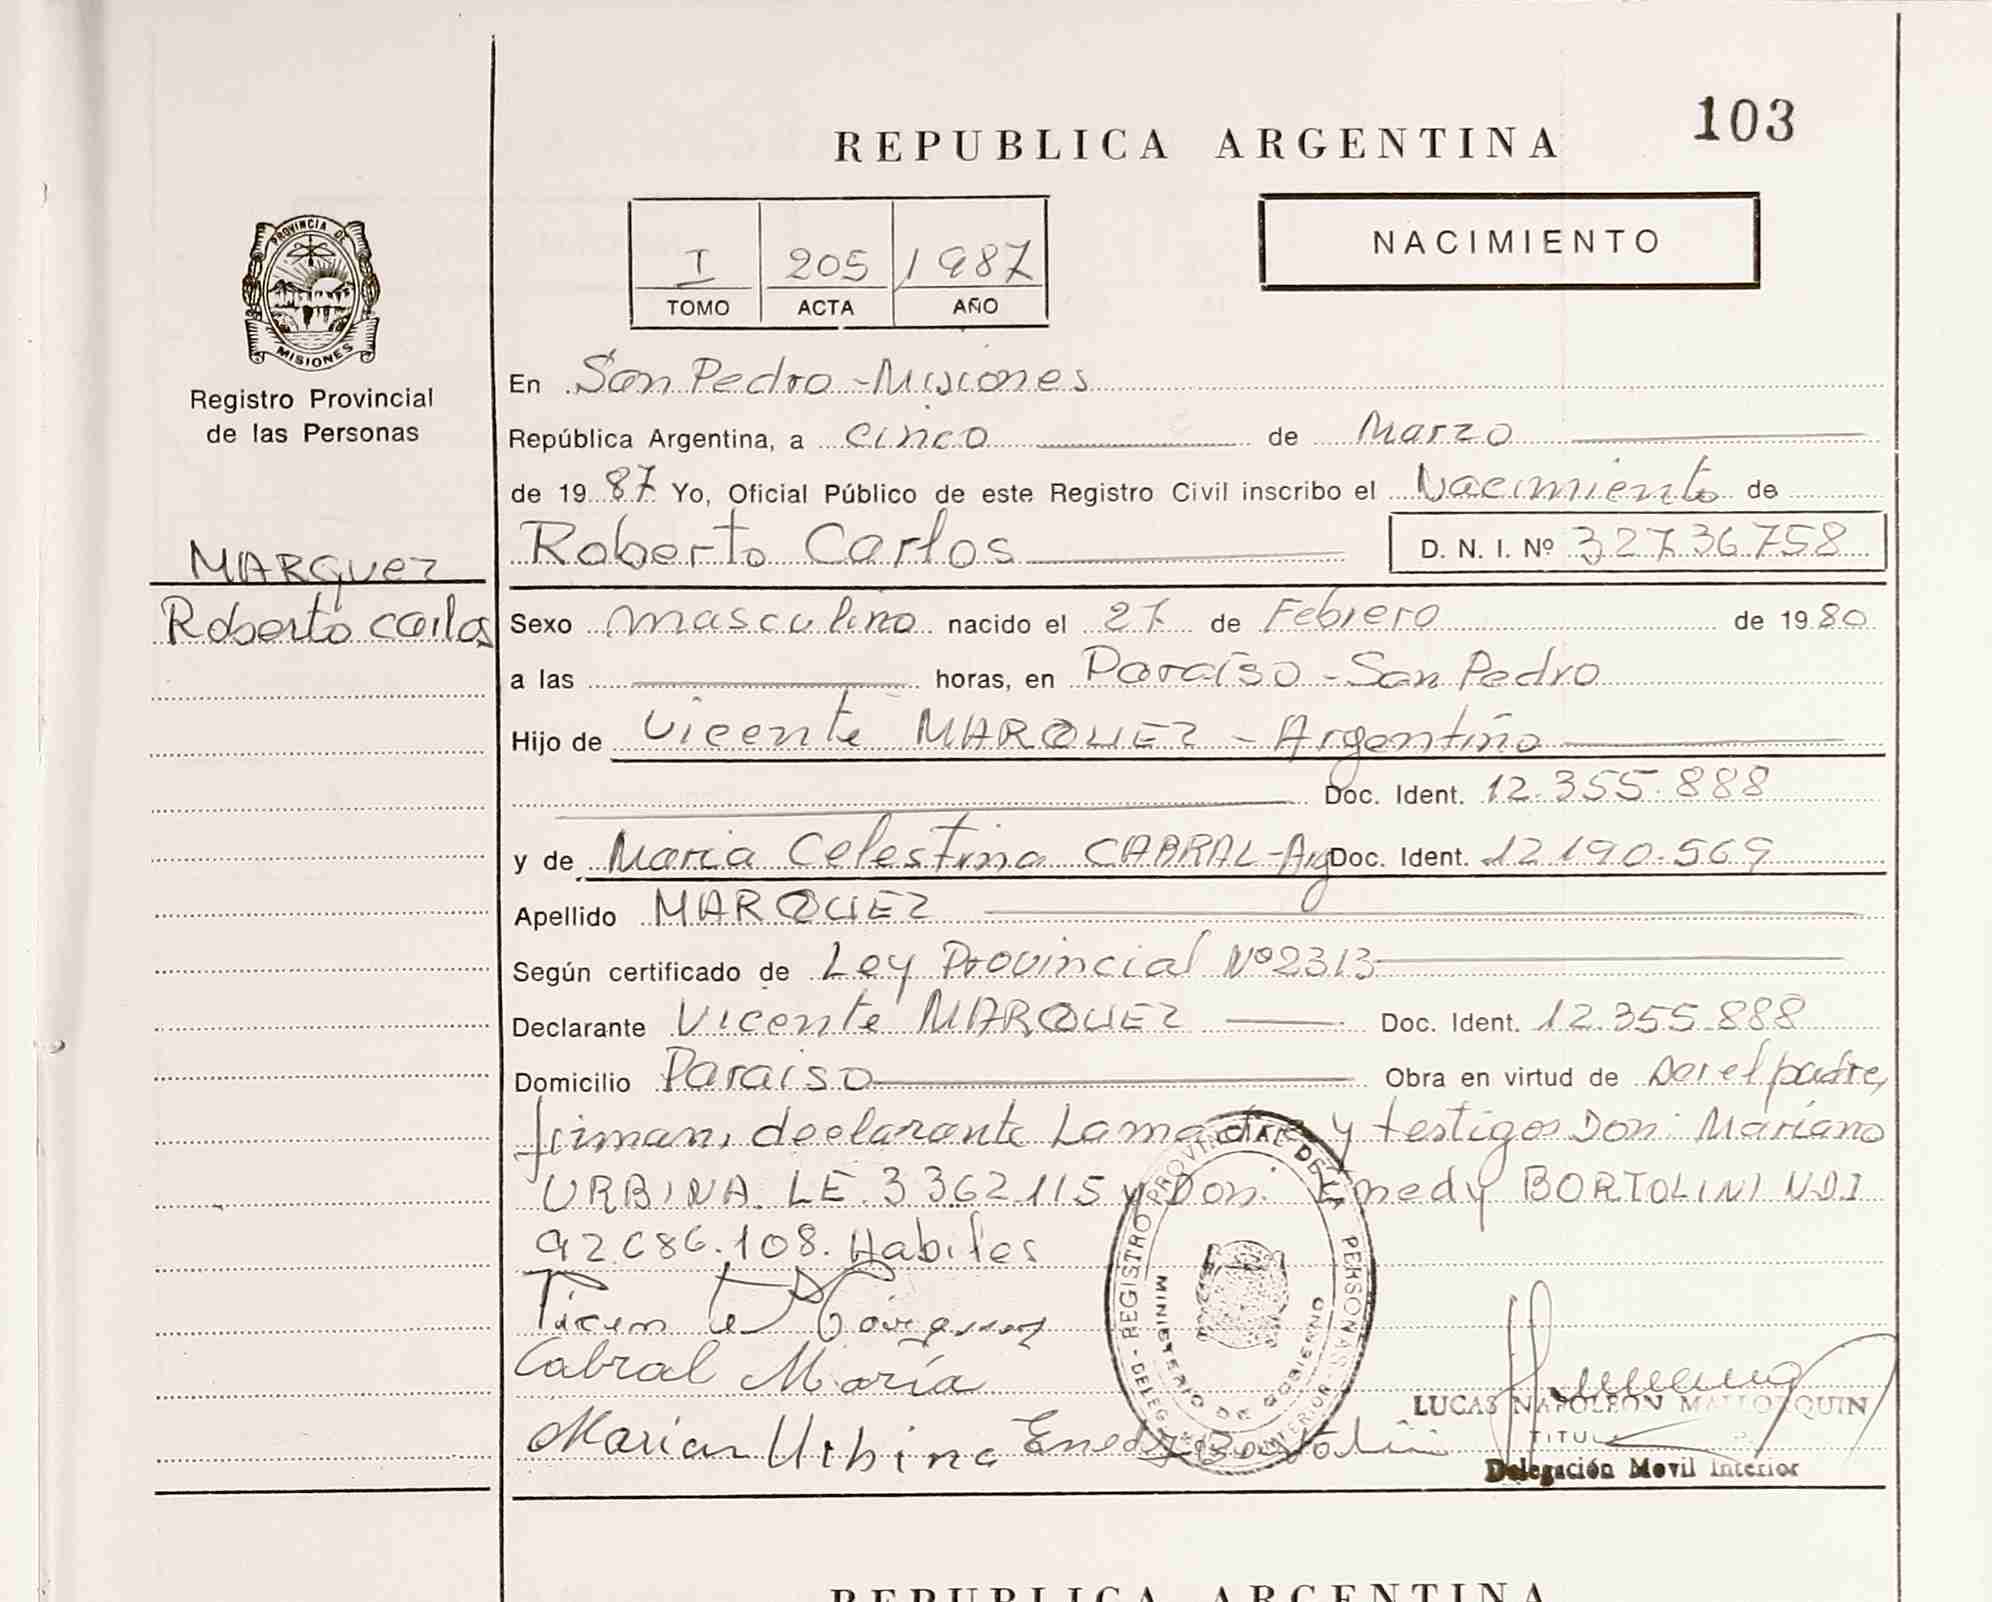 103
REPUBLICA ARGENTINA
I 205 1987
TOMO ACTA AÑO
NACIMIENTO
PROVINCIA DE
MISIONES
Registro Provincial
de las Personas
MARQUEZ
Roberto Carlos
En San Pedro - Misiones
República Argentina, a cinco de Marzo
de 1987 Yo, Oficial Público de este Registro Civil inscribo el Nacimiento de
Roberto Carlos D. N. I. Nº 32736758
Sexo masculino nacido el 27 de Febrero de 1980
a las horas, en Paraíso - San Pedro
Hijo de Vicente MARQUEZ - Argentino
Doc. Ident. 12.355.888
y de Maria Celestina CABRAL - Arg Doc. Ident. 12.190.569
Apellido MARQUEZ
Según certificado de Ley Provincial Nº 2313
Declarante Vicente MARQUEZ Doc. Ident. 12.355.888
Domicilio Paraiso Obra en virtud de ser el padre,
firman, declarante La madre y testigos Don: Mariano
URBINA LE 3362115 y Don. Enedy BORTOLINI NDI
92.686.108. Habiles
Vicente
Cabral María
Marian Urbina Enedy Bortolin
REGISTRO PROVINCIAL DE LA PERSONAS
MINISTERIO DE GOBIERNO
LUCAS NAPOLEON MALLORQUIN
TITULAR
Delegación Movil Interior
REPUBLICA ARGENTINA